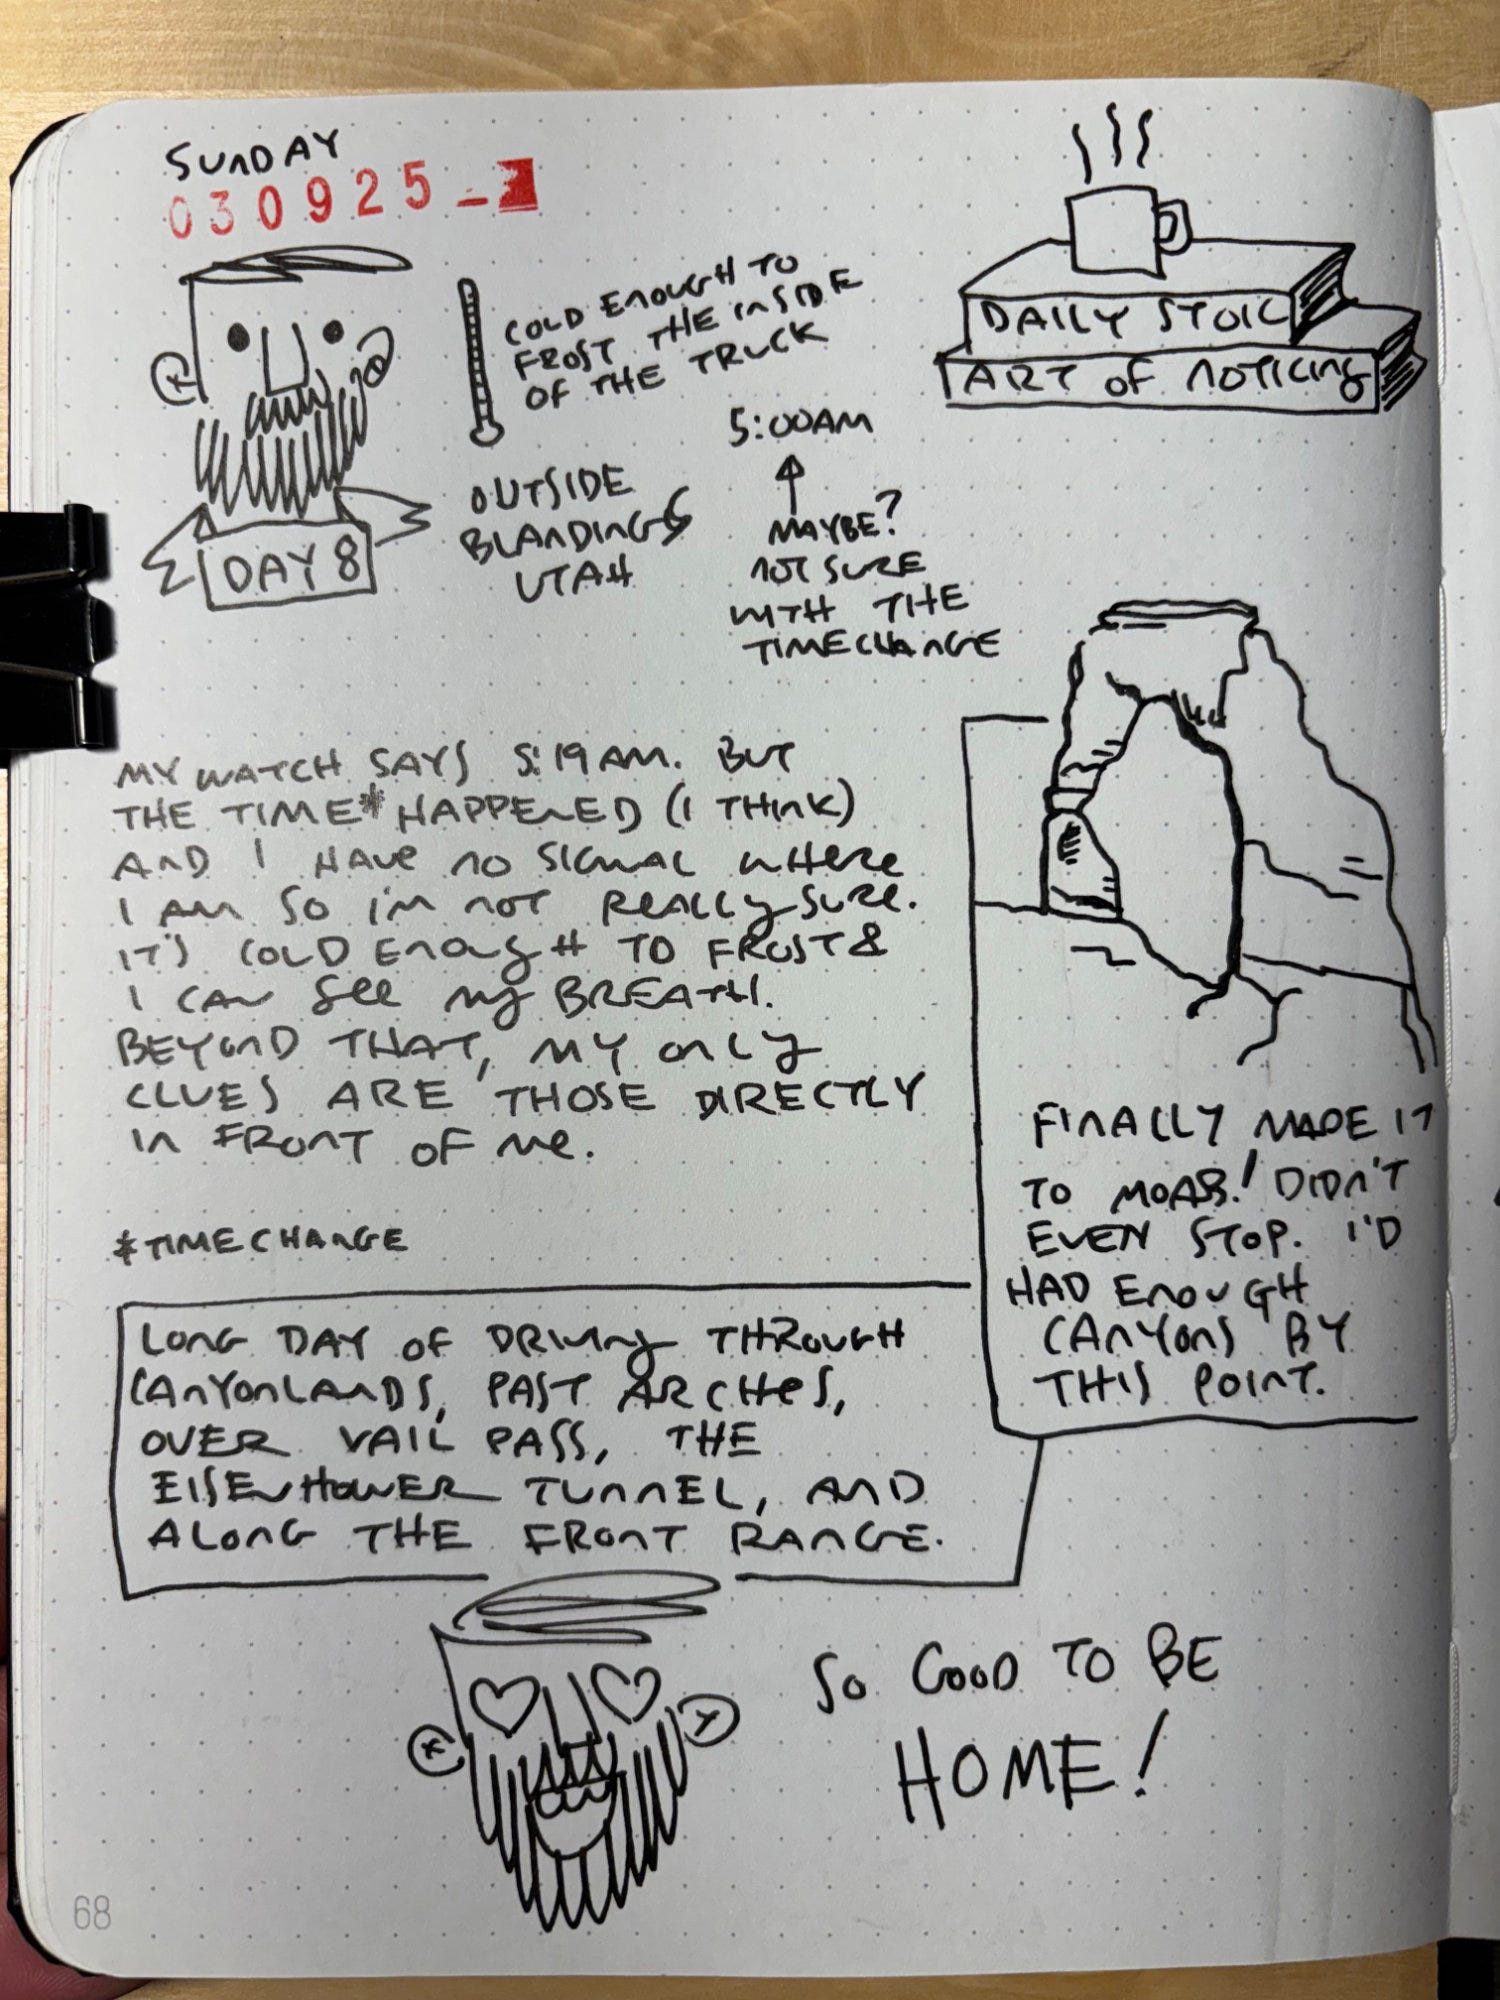 SUNDAY
030925_
COLD ENOUGH TO
FROST THE INSIDE
OF THE TRUCK
DAILY STOIC
ART OF NOTICING
5:00AM
MAYBE?
NOT SURE
WITH THE
TIMECHANGE
OUTSIDE
BLANDINGS
UTAH
DAY 8
MY WATCH SAYS 5:19AM. BUT
THE TIME* HAPPENED (I THINK)
AND I HAVE NO SIGNAL WHERE
I AM SO I'M NOT REALLY SURE.
IT'S COLD ENOUGH TO FROST &
I CAN SEE MY BREATH.
BEYOND THAT, MY ONLY
CLUES ARE THOSE DIRECTLY
IN FRONT OF ME.
*TIMECHANGE
FINALLY MADE IT
TO MOAB! DIDN'T
EVEN STOP. I'D
HAD ENOUGH
CANYONS BY
THIS POINT.
LONG DAY OF DRIVING THROUGH
CANYONLANDS, PAST ARCHES,
OVER VAIL PASS, THE
EISENHOWER TUNNEL, AND
ALONG THE FRONT RANGE.
SO GOOD TO BE
HOME!
68